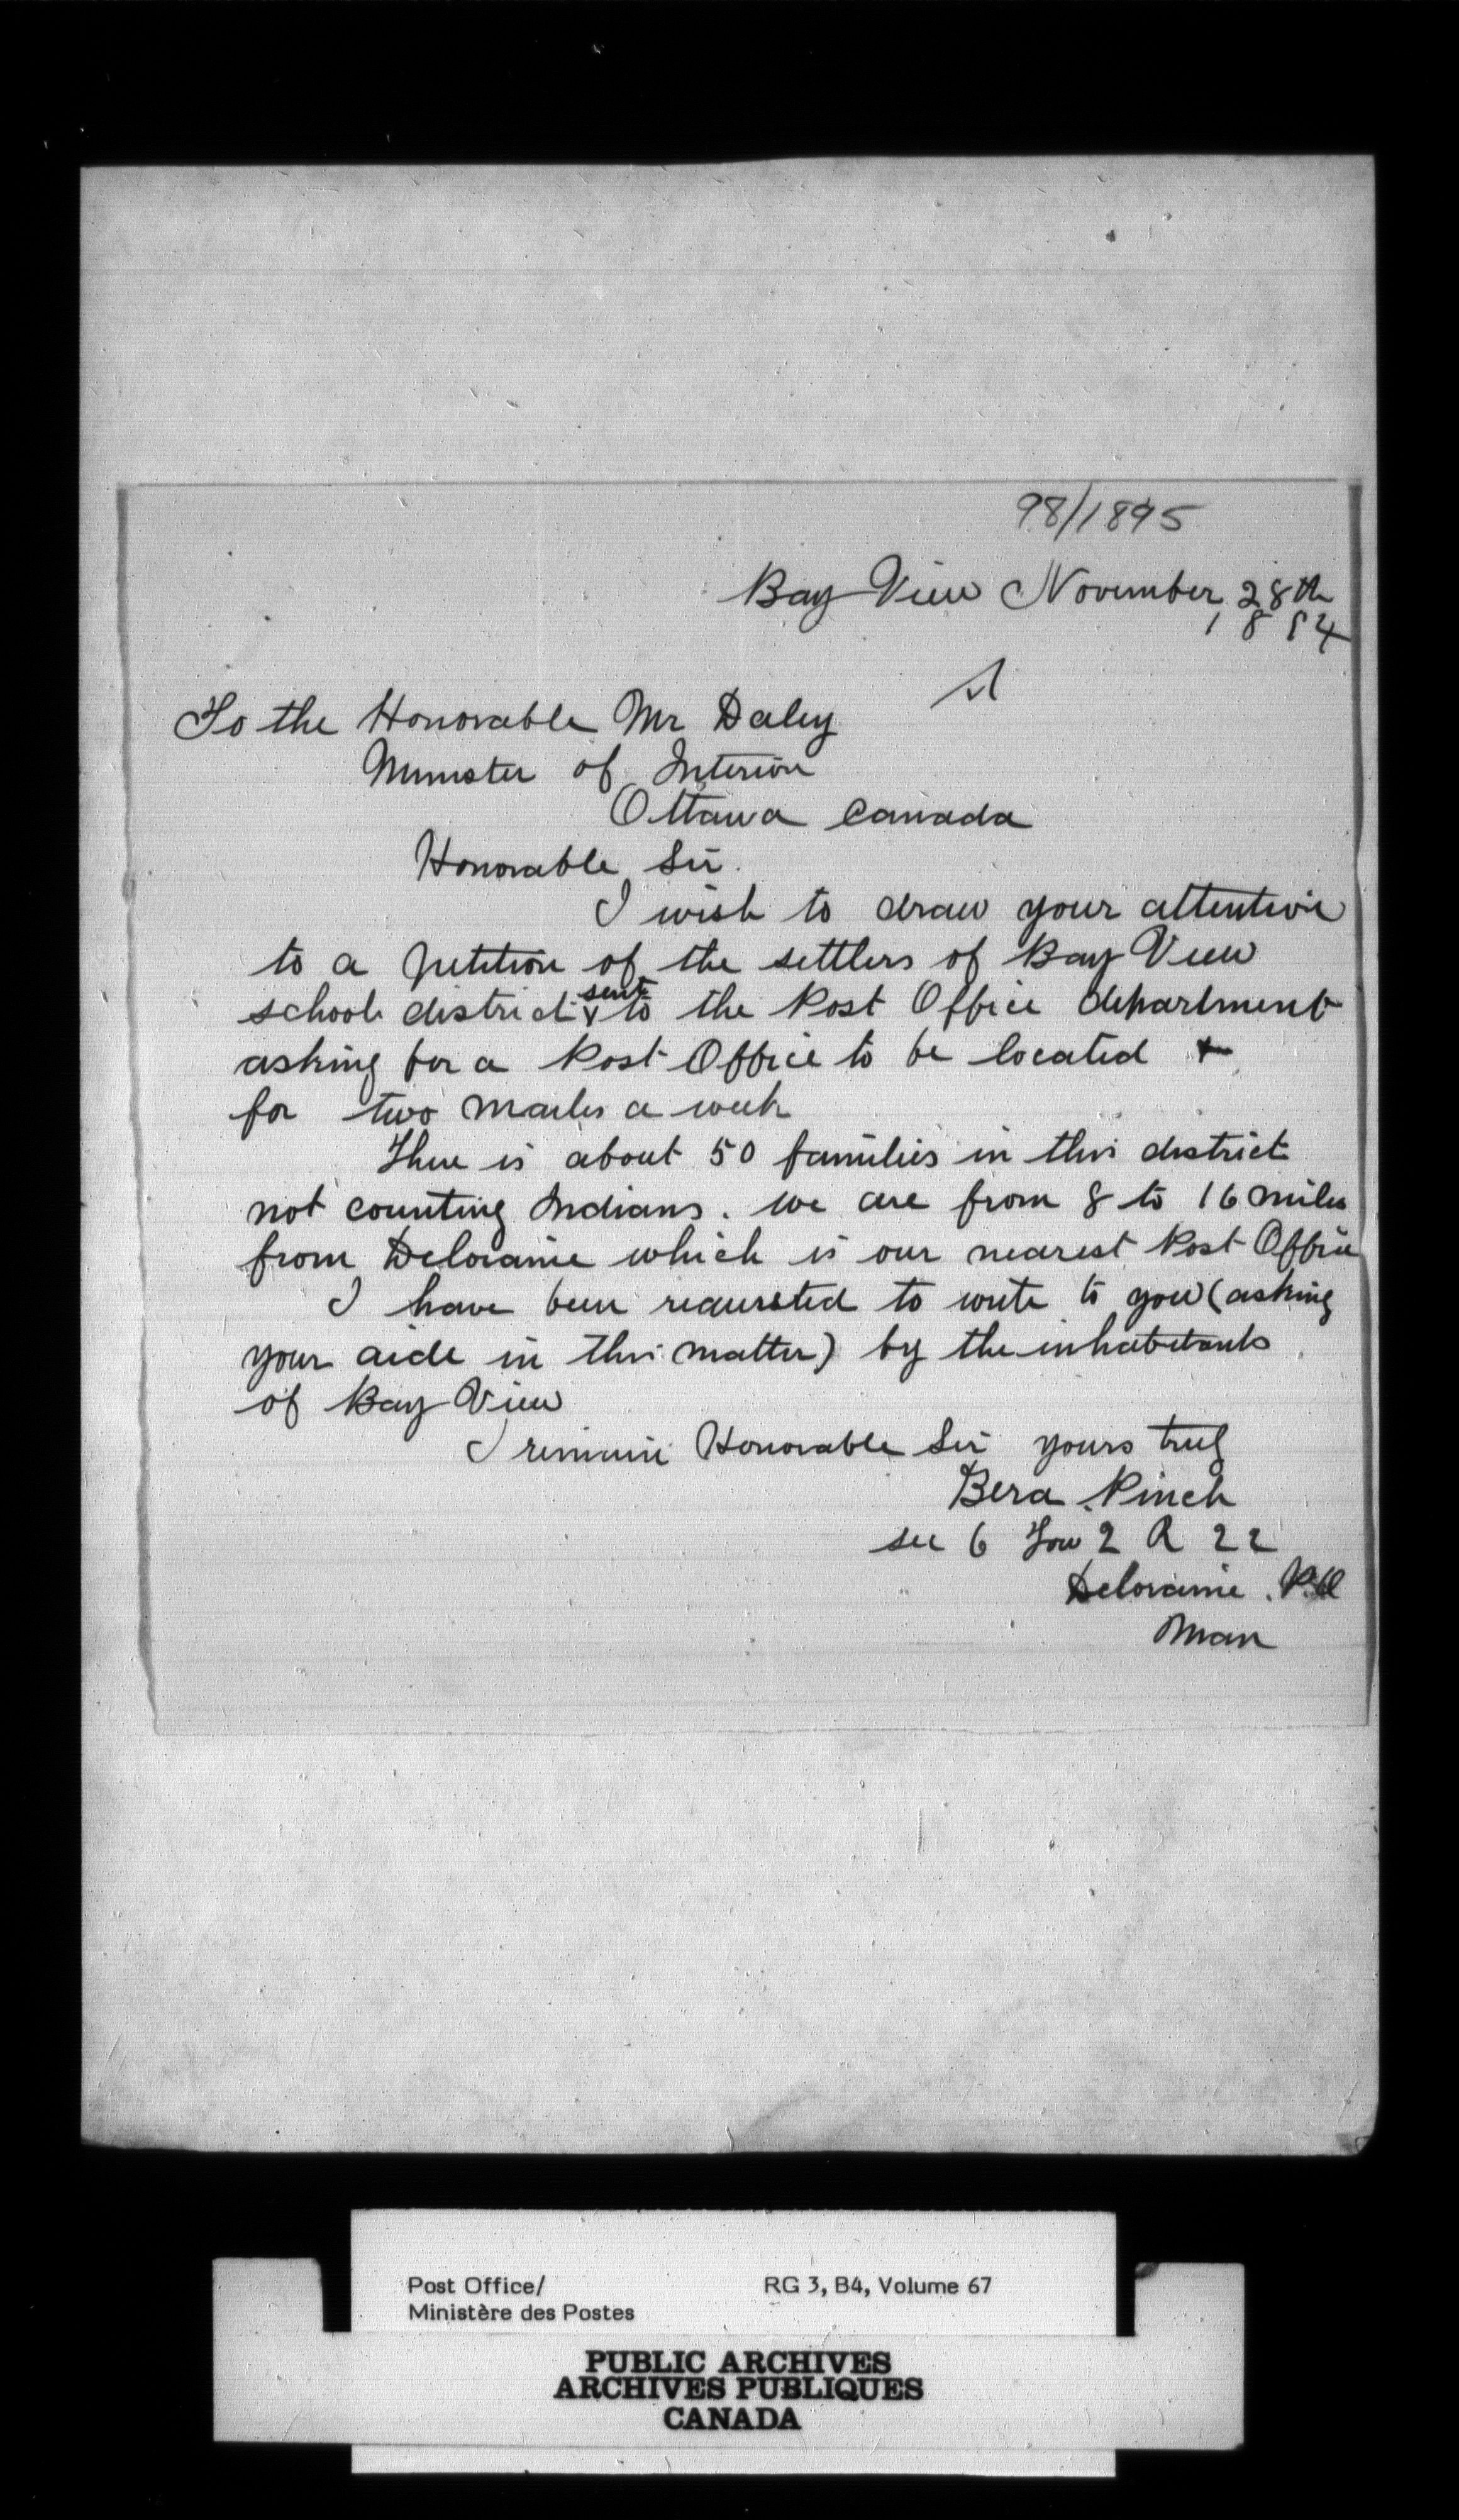 98/1895
Bay View November 28th
1894
To the Honorable Mr Daley
Minister of Interior
Ottawa Canada
Honorable Sir.
I wish to draw your attention
to a petition of the settlers of Bay View
school district sent to the Post Office department
asking for a Post Office to be located &
for two mails a week
There is about 50 families in this district
not counting Indians. we are from 8 to 16 miles
from Deloraine which is our nearest Post Office
I have been requested to write to you (asking
your aide in this matter) by the inhabitants
of Bay View
I remain Honorable Sir yours truly
Pinch
sec 6 Tow 2 R 22
Deloraine. P.O
Man
Post Office/ RG 3, B4, Volume 67
Ministère des Postes
PUBLIC ARCHIVES
ARCHIVES PUBLIQUES
CANADA